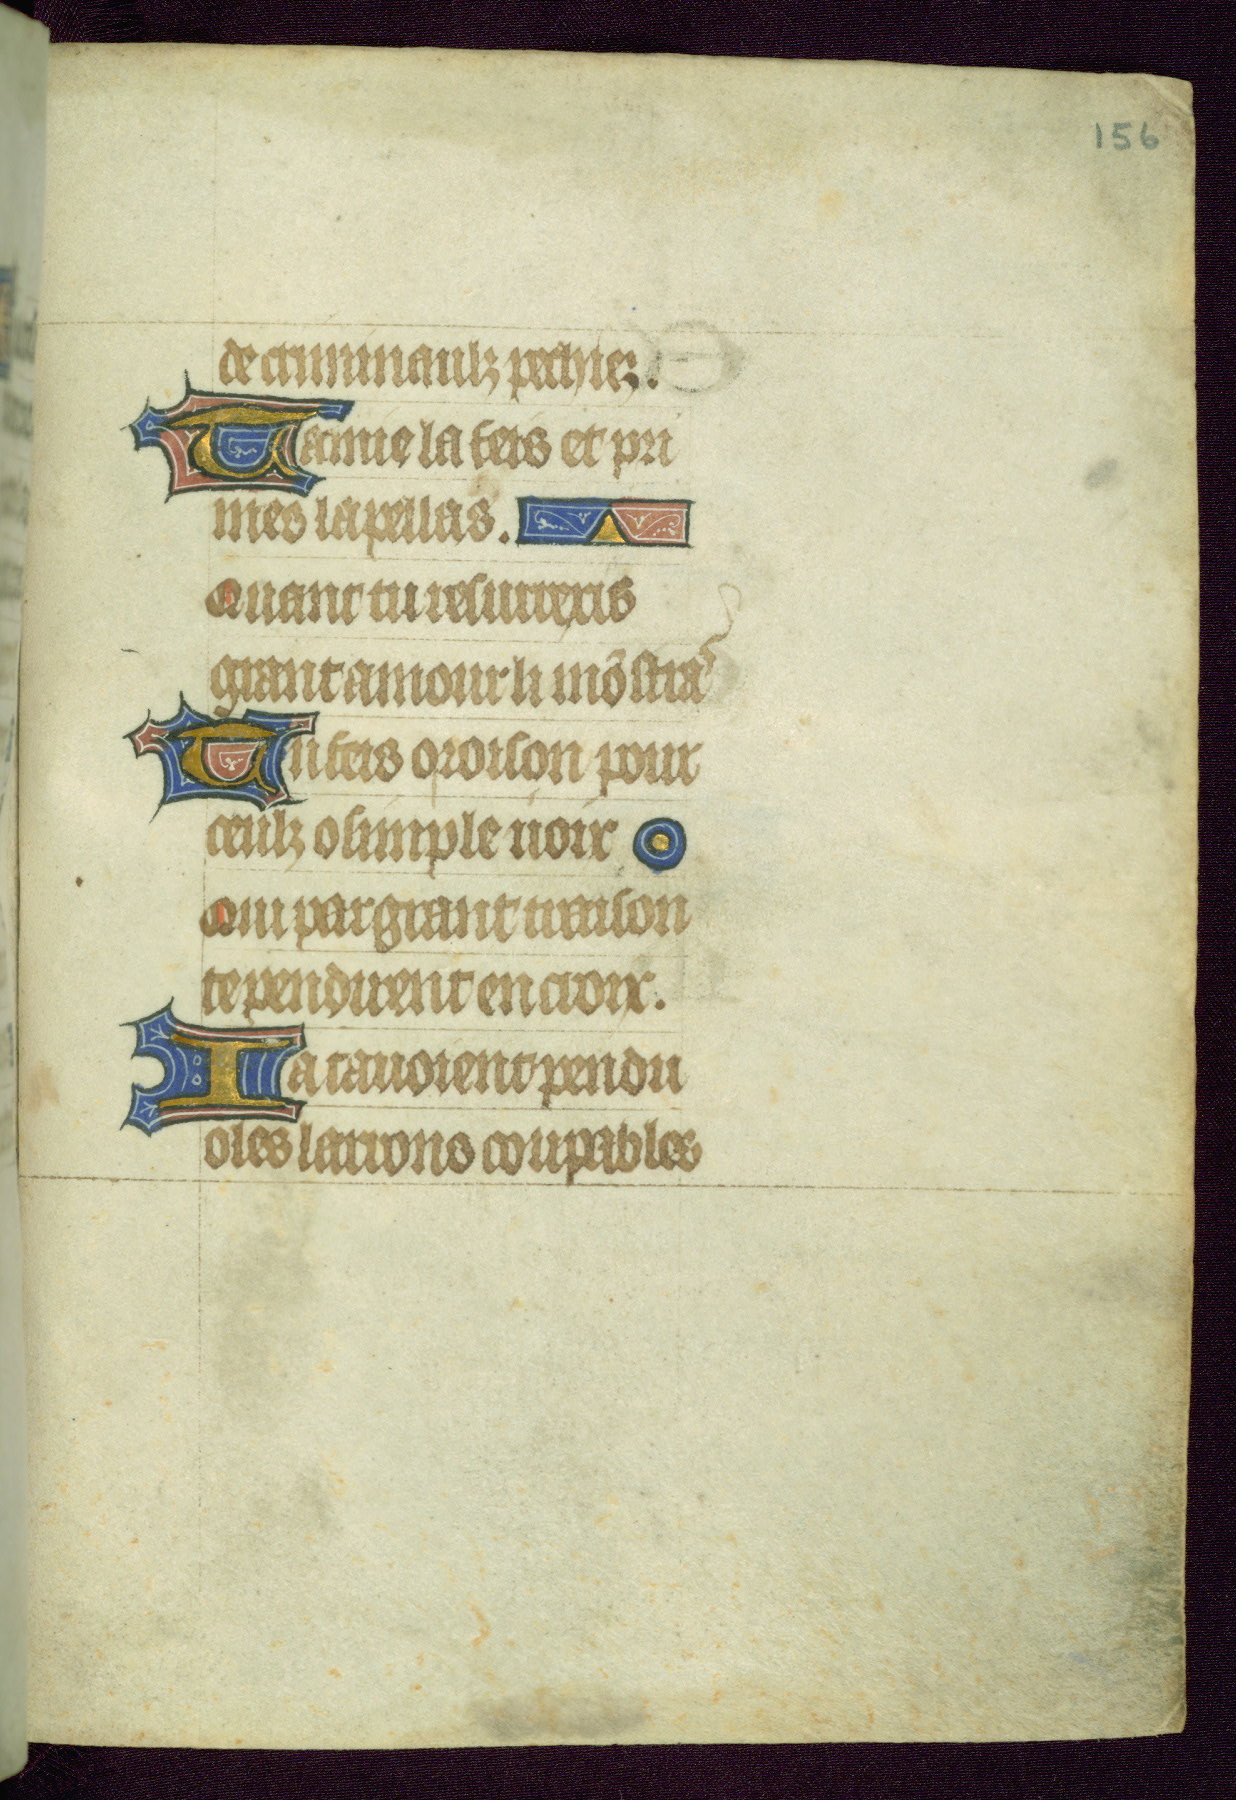 156
de criminaulz pechiez.
Tamie la feis et pri
mes lapellas.
Quant tu resurrexis
grant amour li mõstras
Tu feis oroison pour
ceulz o simple uoix
Qui par grant traison
te pendirent en croix.
Ia tauoient pendu
o les larrons coupables